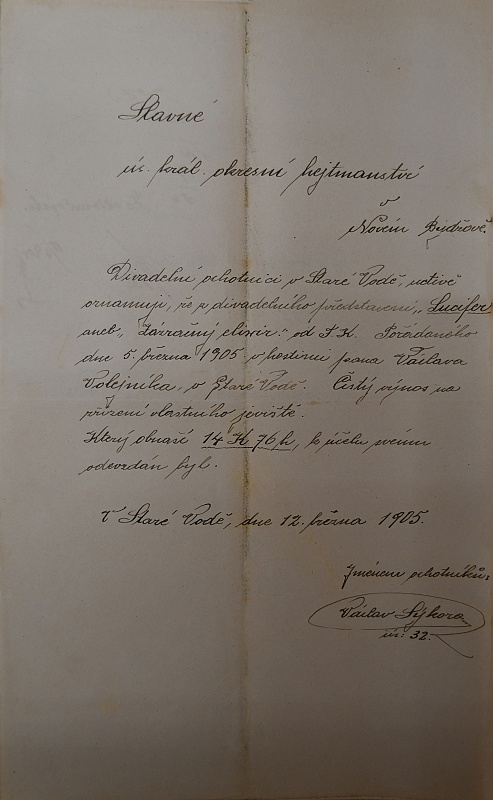 Slavné
cís. král. okresní hejtmanství
v
Novém Bydžově.
Divadelní ochotníci v Staré Vodě, uctivě
oznamují, že z divadelního představení „Lucifer
aneb „Zázračný elixír." od F. K. Pořádaného
dne 5. března 1905 v hostinci pana Václava
Volejníka, v Staré Vodě. Čistý výnos na
zřízení vlastního jeviště.
Který obnáší 14 K 76 h, k účelu svému
odevzdán byl.
V Staré Vodě, dne 12. března 1905.
Jménem ochotníků:
Václav Sýkora
čís: 32.